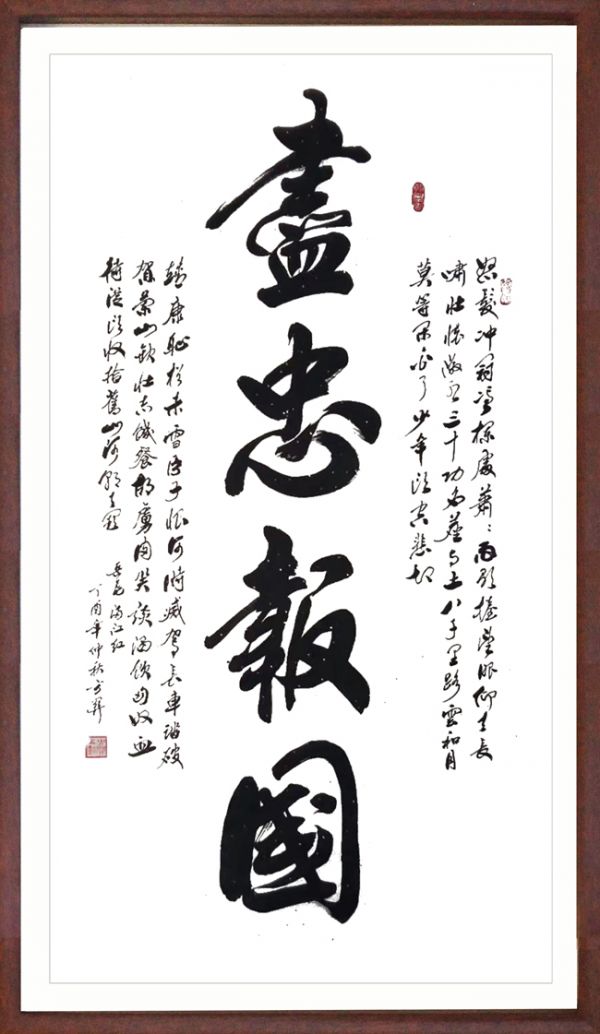 怒髮冲冠憑欄處蕭〻雨歇擡望眼仰天長
嘯壯懷激烈三十功名塵与土八千里路雲和月
莫等闲白了少年頭空悲切
盡忠報國
靖康恥猶未雪臣子恨何時滅駕長車踏破
賀蘭山缺壯志饑餐胡虜肉笑談渴飲匈奴血
待從頭收拾舊山河朝天闕
岳飛滿江红
丁酉年仲秋